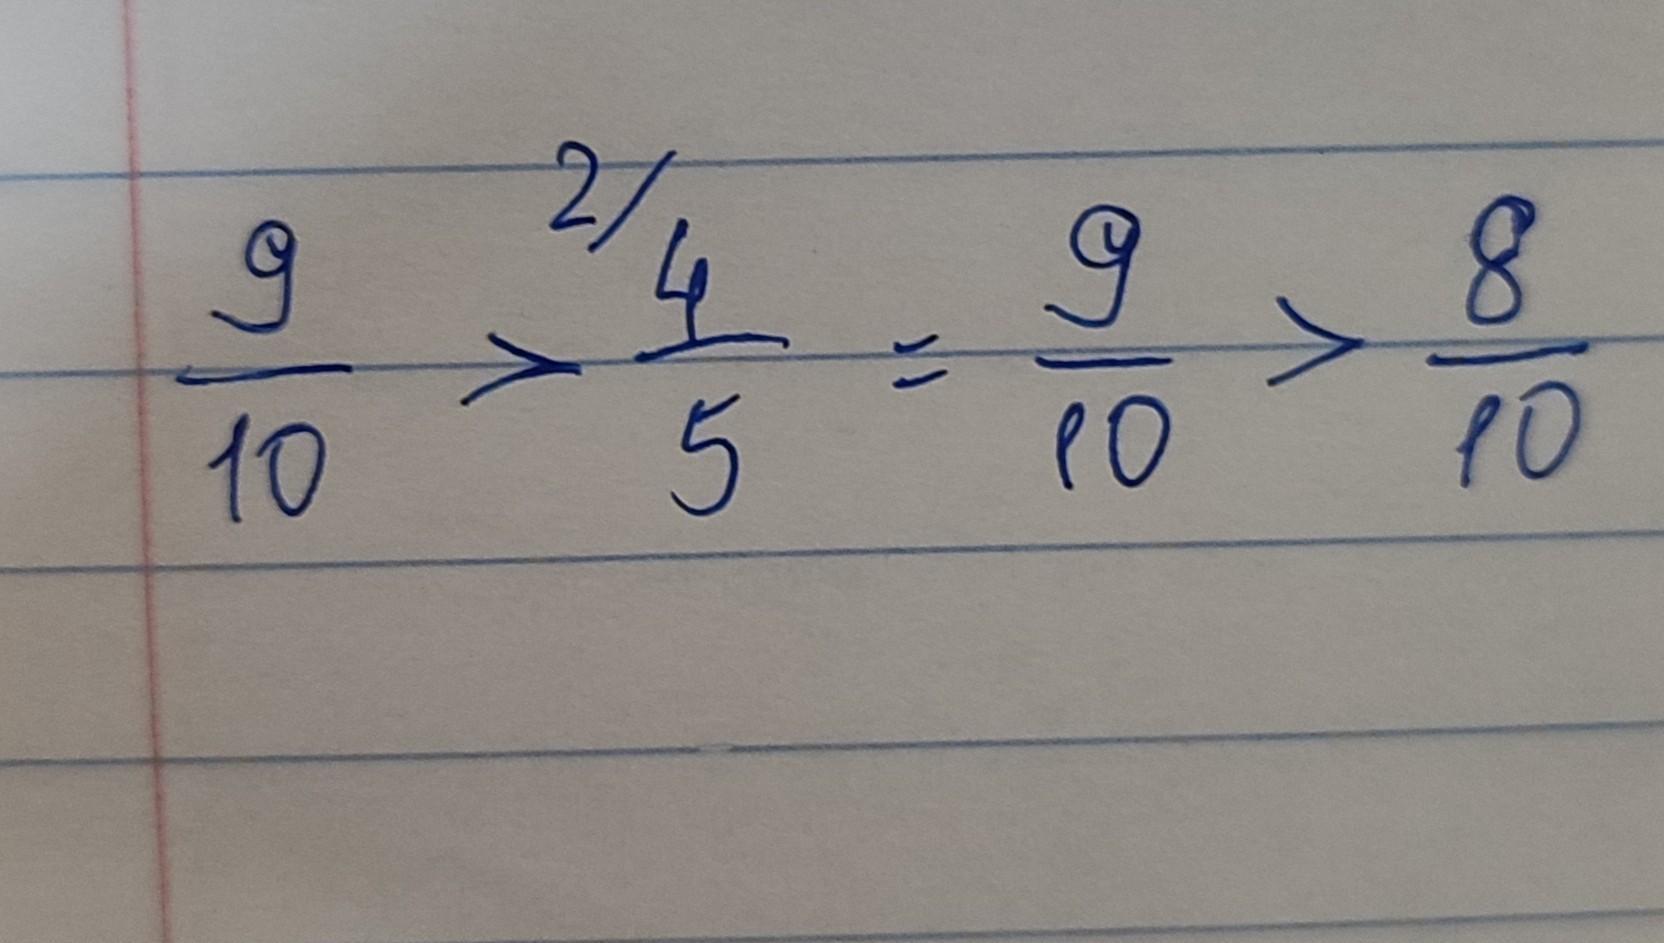 9/10 > 2/ 4/5 = 9/10 > 8/10